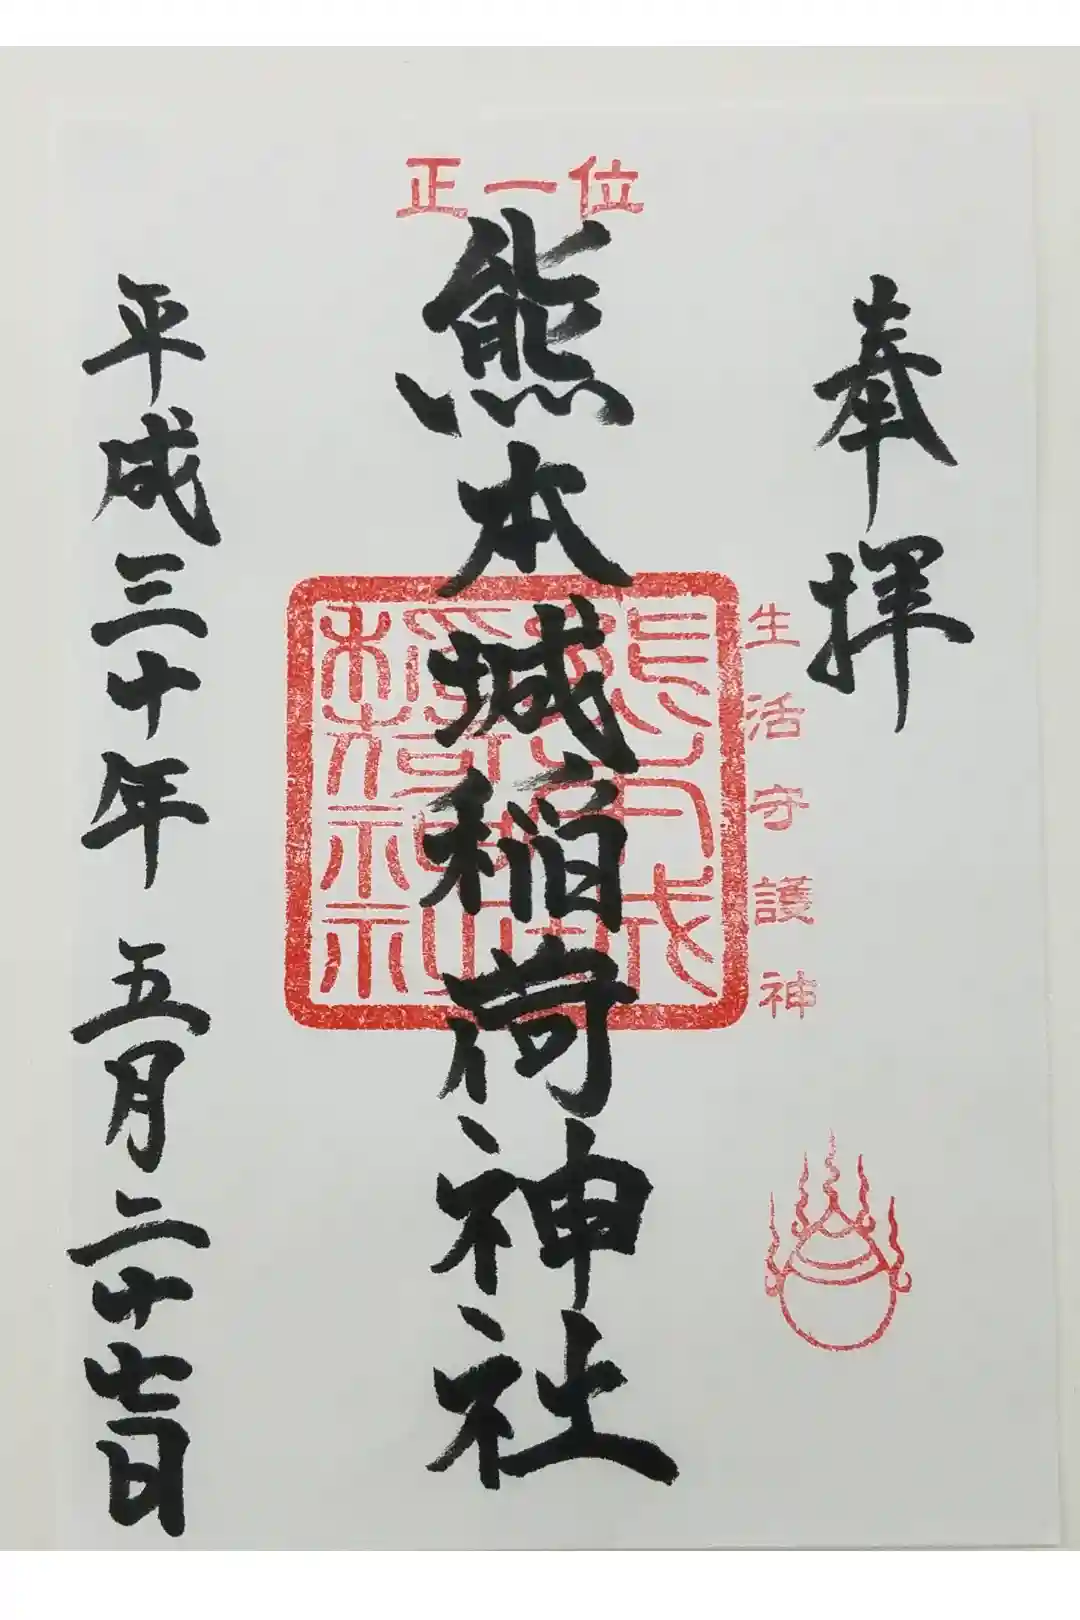 奉拝
生活守護神
正一位
熊本城稲荷神社
平成三十年五月二十七日